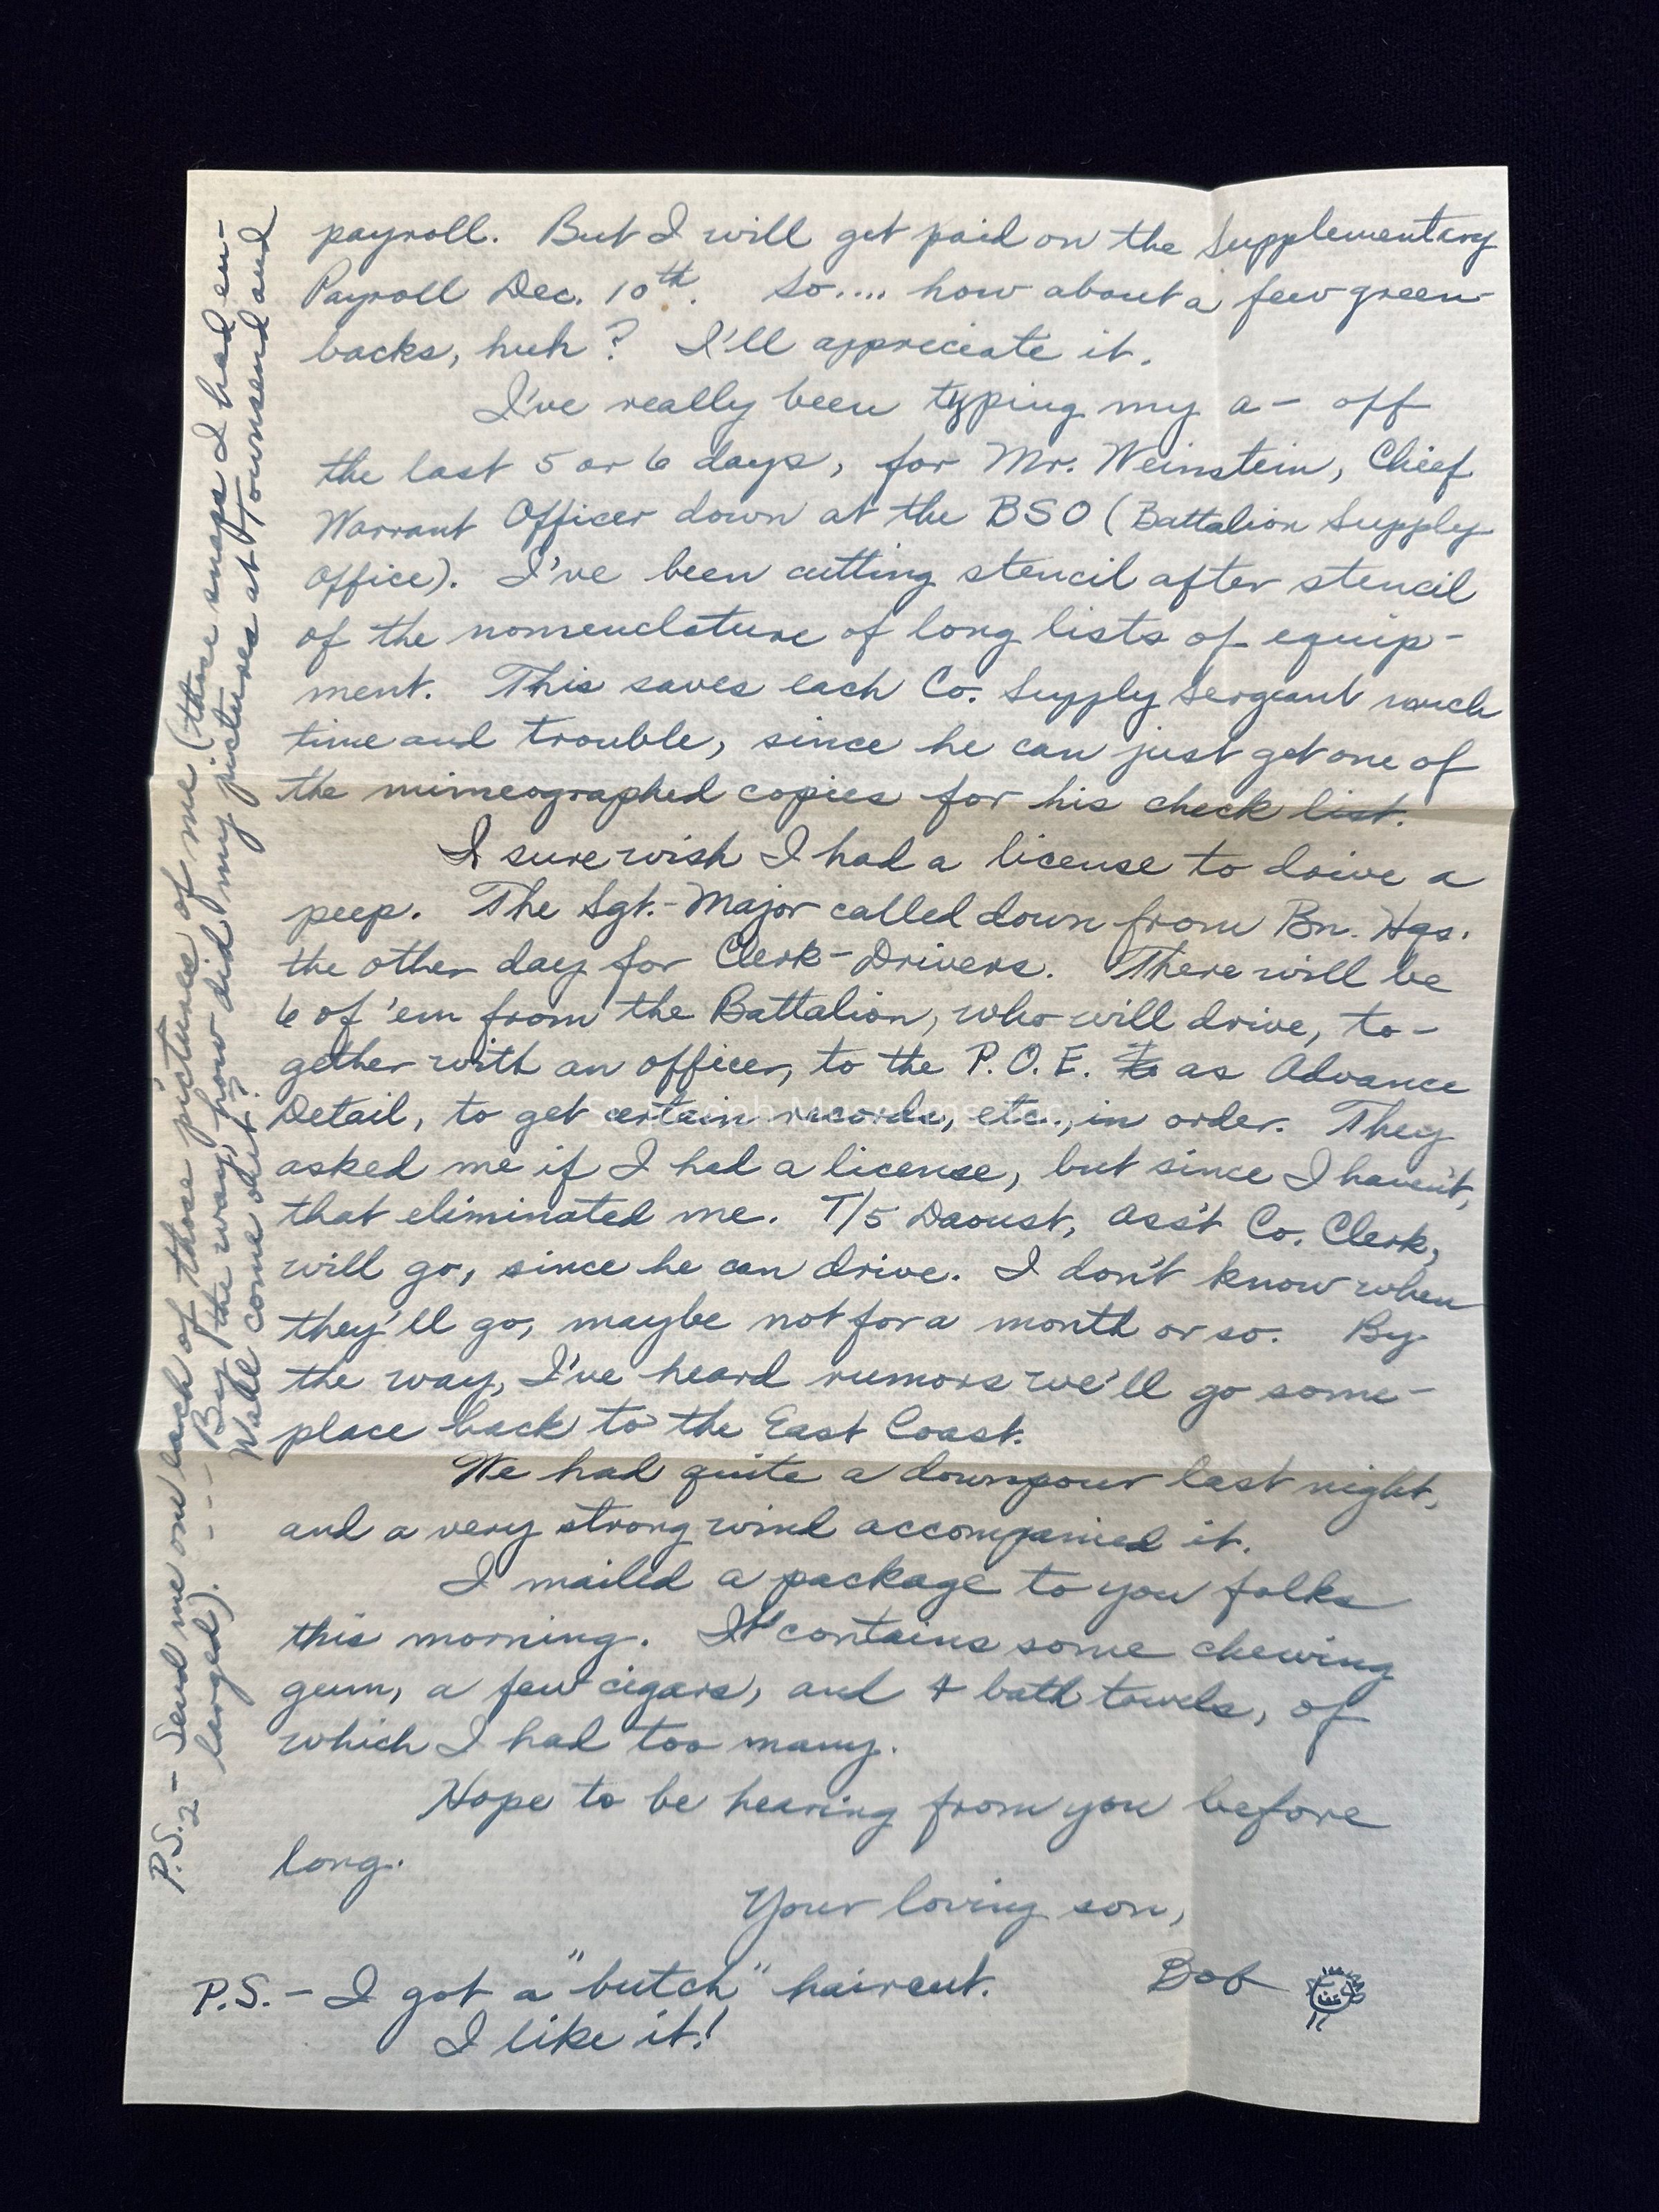 payroll. But I will get paid on the Supplementary
Payroll Dec. 10th. So.... how about a few green-
backs, huh? I'll appreciate it.
I've really been typing my a— off
the last 5 or 6 days, for Mr. Weinstein, Chief
Warrant Officer down at the BSO (Battalion Supply
Office). I've been cutting stencil after stencil
of the nomenclature of long lists of equip-
ment. This saves each Co. Supply Sergeant much
time and trouble, since he can just get one of
the mimeographed copies for his check list.
I sure wish I had a license to drive a
peep. The Sgt.-Major called down from Bn. Hqs.
the other day for Clerk-Drivers. There will be
6 of 'em from the Battalion, who will drive, to-
gether with an officer, to the P.O.E. as Advance
Detail, to get certain records, etc., in order. They
asked me if I had a license, but since I haven't,
that eliminated me. T/5 Daoust, Ass't Co. Clerk,
will go, since he can drive. I don't know when
they'll go, maybe not for a month or so. By
the way, I've heard rumors we'll go some-
place back to the East Coast.
We had quite a downpour last night,
and a very strong wind accompanied it.
I mailed a package to you folks
this morning. It contains some chewing
gum, a few cigars, and 4 bath towels, of
which I had too many.
Hope to be hearing from you before
long.
Your loving son,
Bob
P.S. — I got a "butch" haircut.
I like it!
P.S.2 — Send me one each of those pictures of me (those snaps I had en-
larged). - - - By the way, how did my pictures at Townsend and
Wall come out?